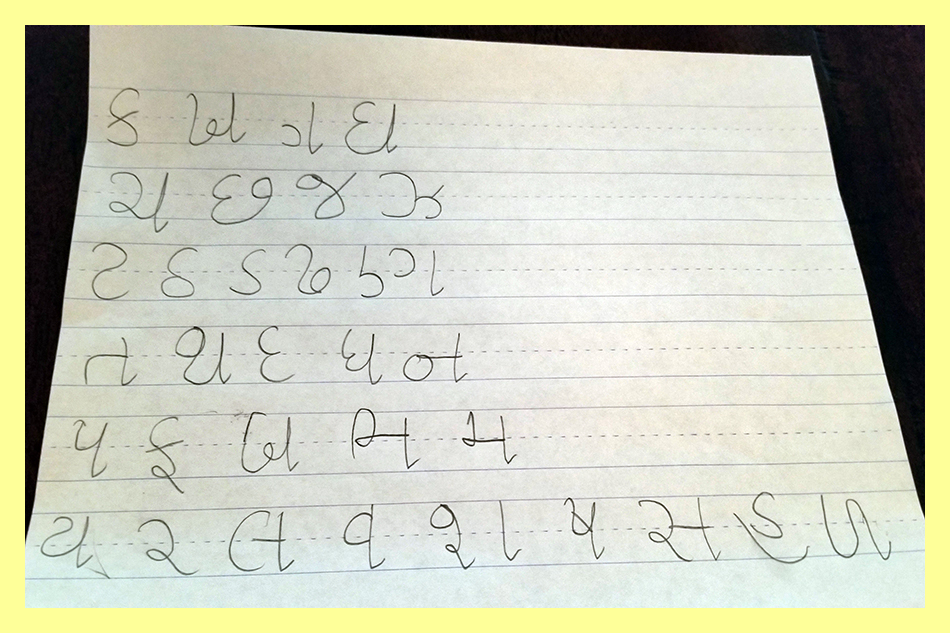 ક ખ ગ ઘ
ચ છ જ ઝ
ટ ઠ ડ ઢ ણ
ત થ દ ધ ન
પ ફ બ ભ મ
ય ર લ વ શ ષ સ હ ળ